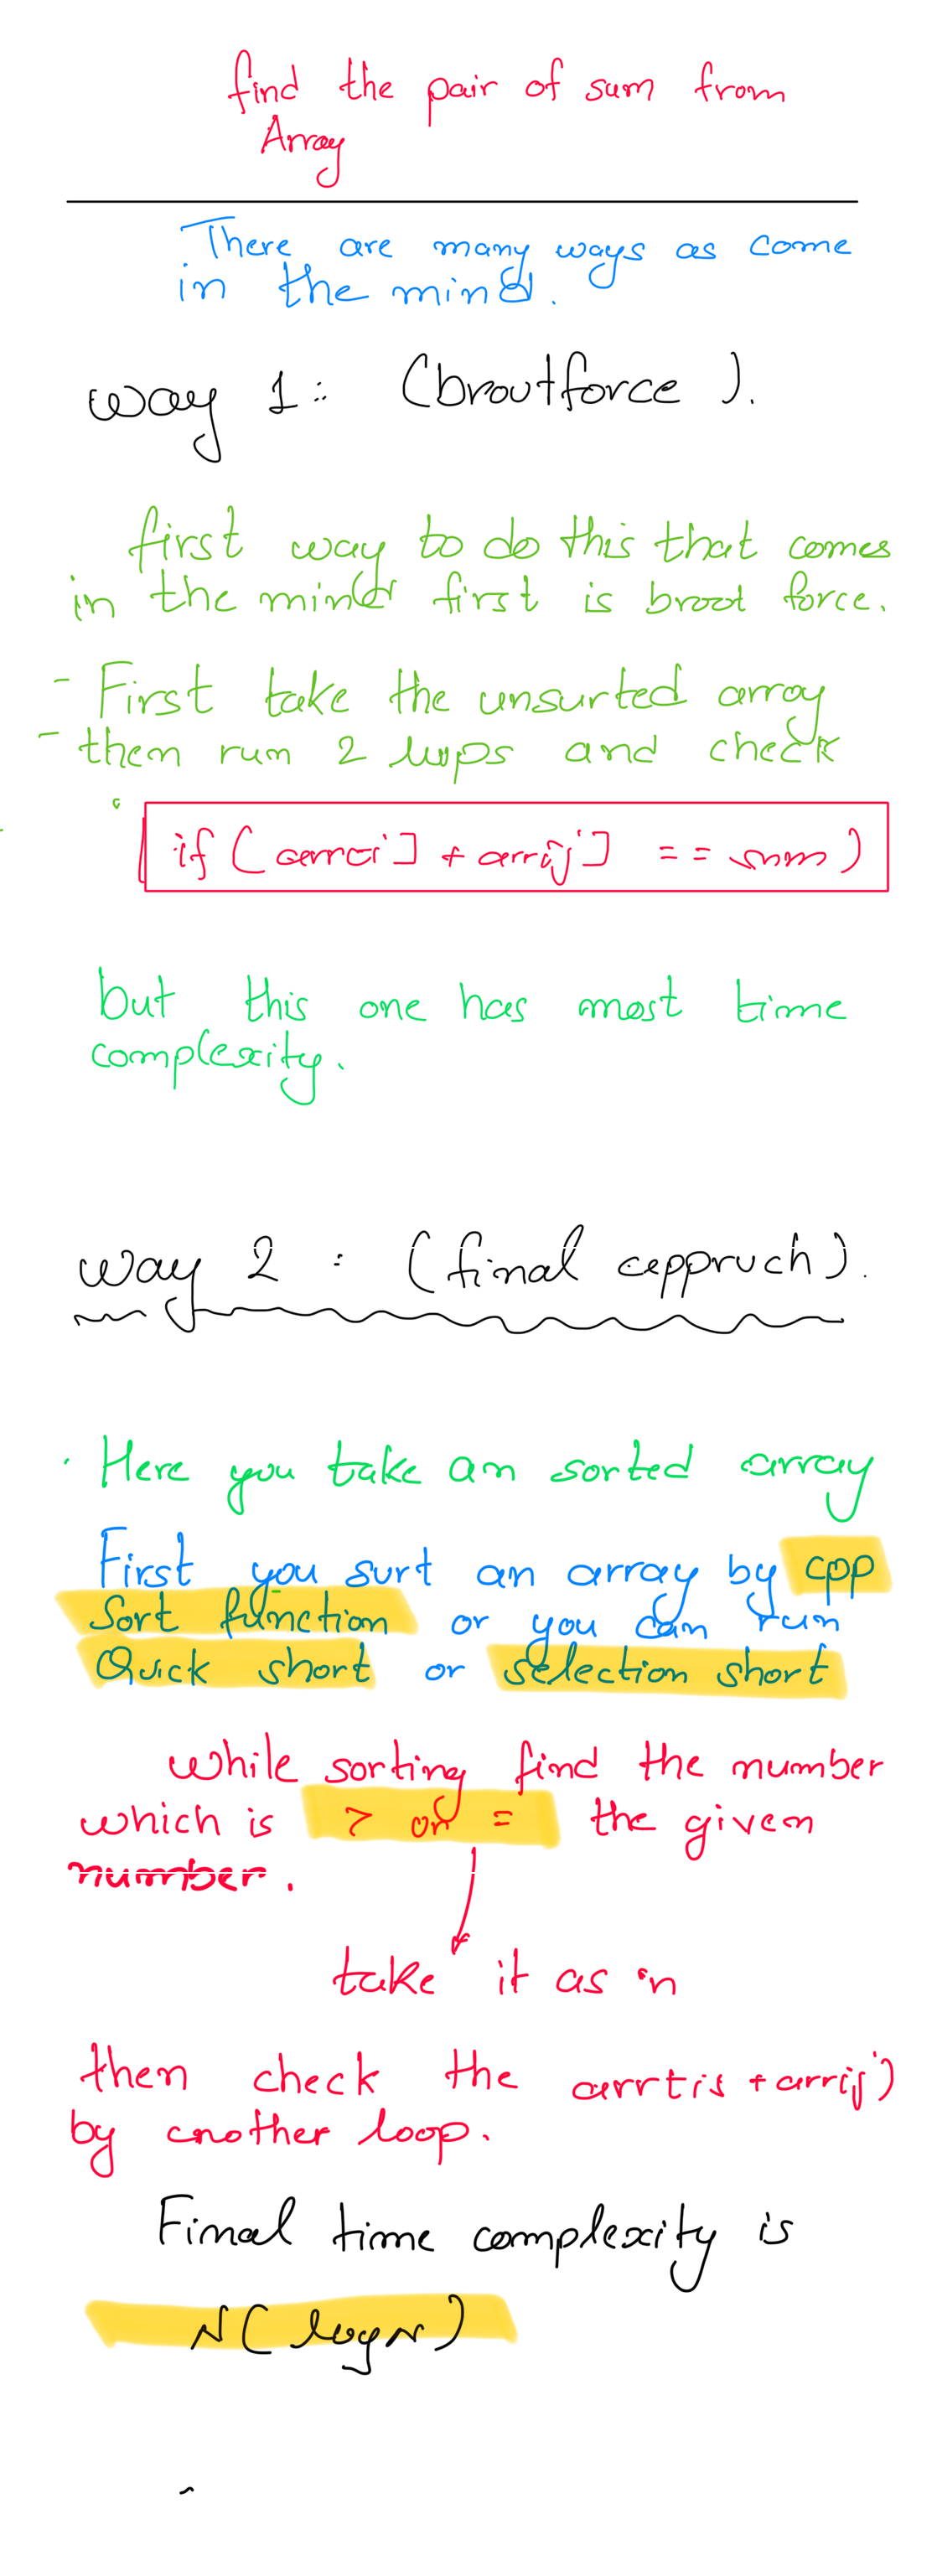 find the pair of sum from
Array
There are many ways as come
in the mind.
way 1: (broutforce).
first way to do this that comes
in the mind first is broot force.
- First take the unsurted array
- then run 2 loops and check
if (arr[i] + arr[j] == sum)
but this one has most time
complexity.
way 2 : (final appruch).
. Here you take an sorted array
First you surt an array by cpp
Sort function or you can run
Quick short or selection short
while sorting find the number
which is > or = the given
number.
take it as n
then check the arr[i] + arr[j]
by another loop.
Final time complexity is
N(logN)